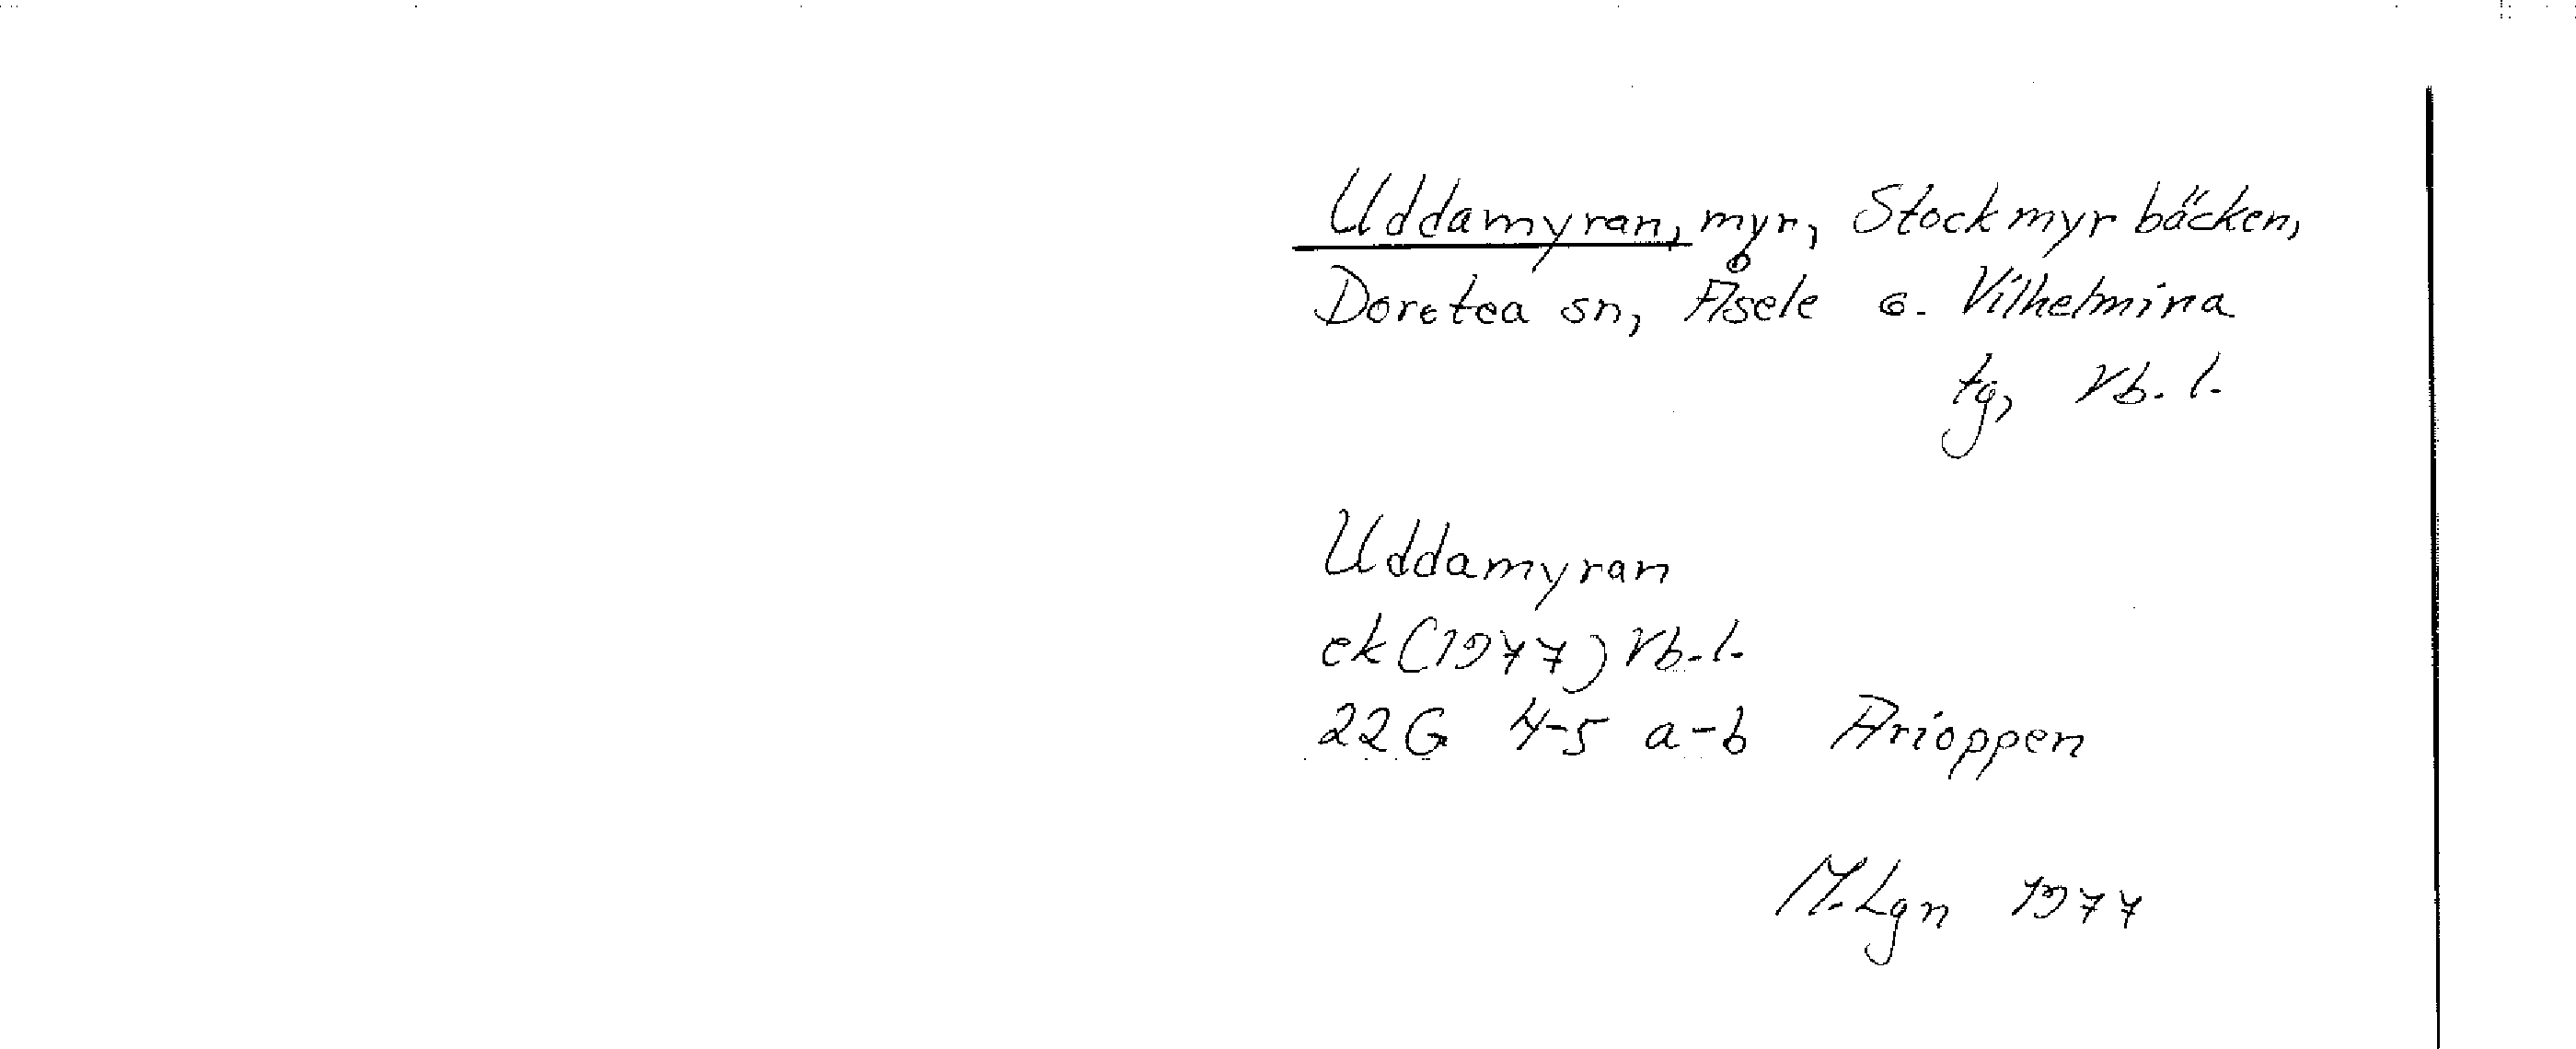 Uddamyran, myr, Stockmyrbäcken,
Dorotea sn, Åsele o. Vilhelmina
tg, Vb. l.
Uddamyran
ek (1977) Vb. l.
22G 4-5 a-b Arioppen
M. Lgn 1977